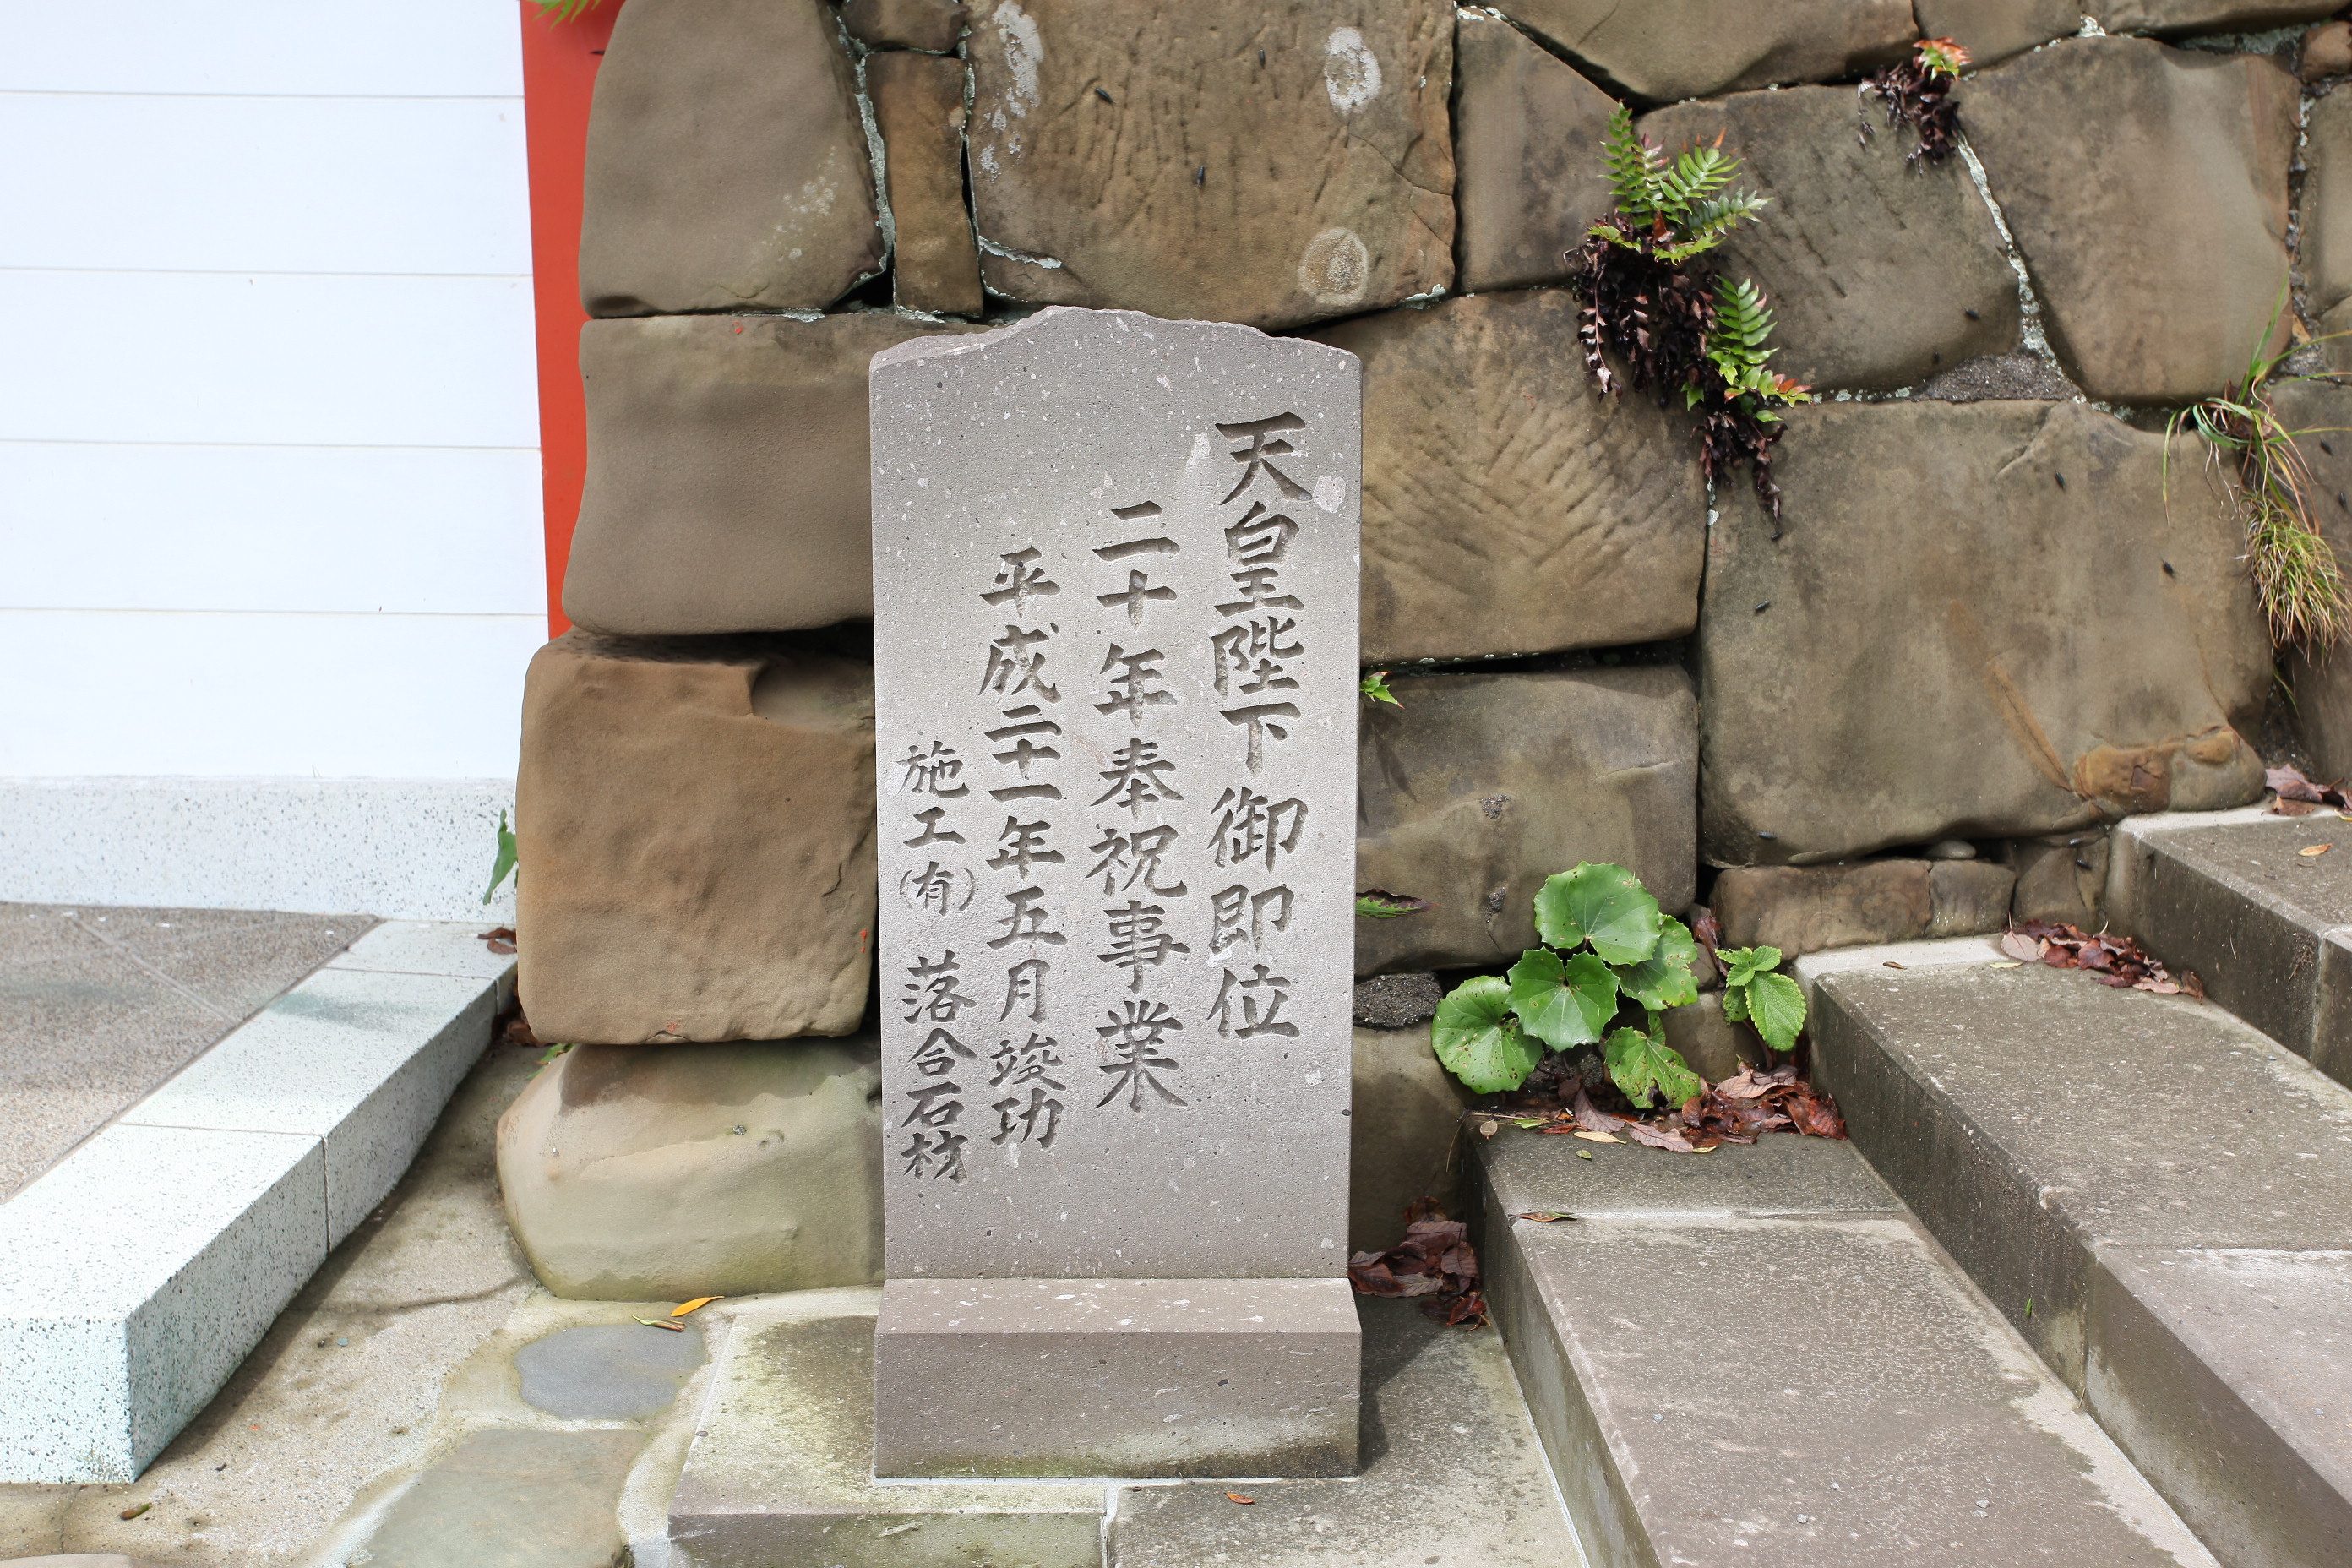 天皇陛下御即位
二十年奉祝事業
平成二十一年五月竣功
施工(有)落合石材